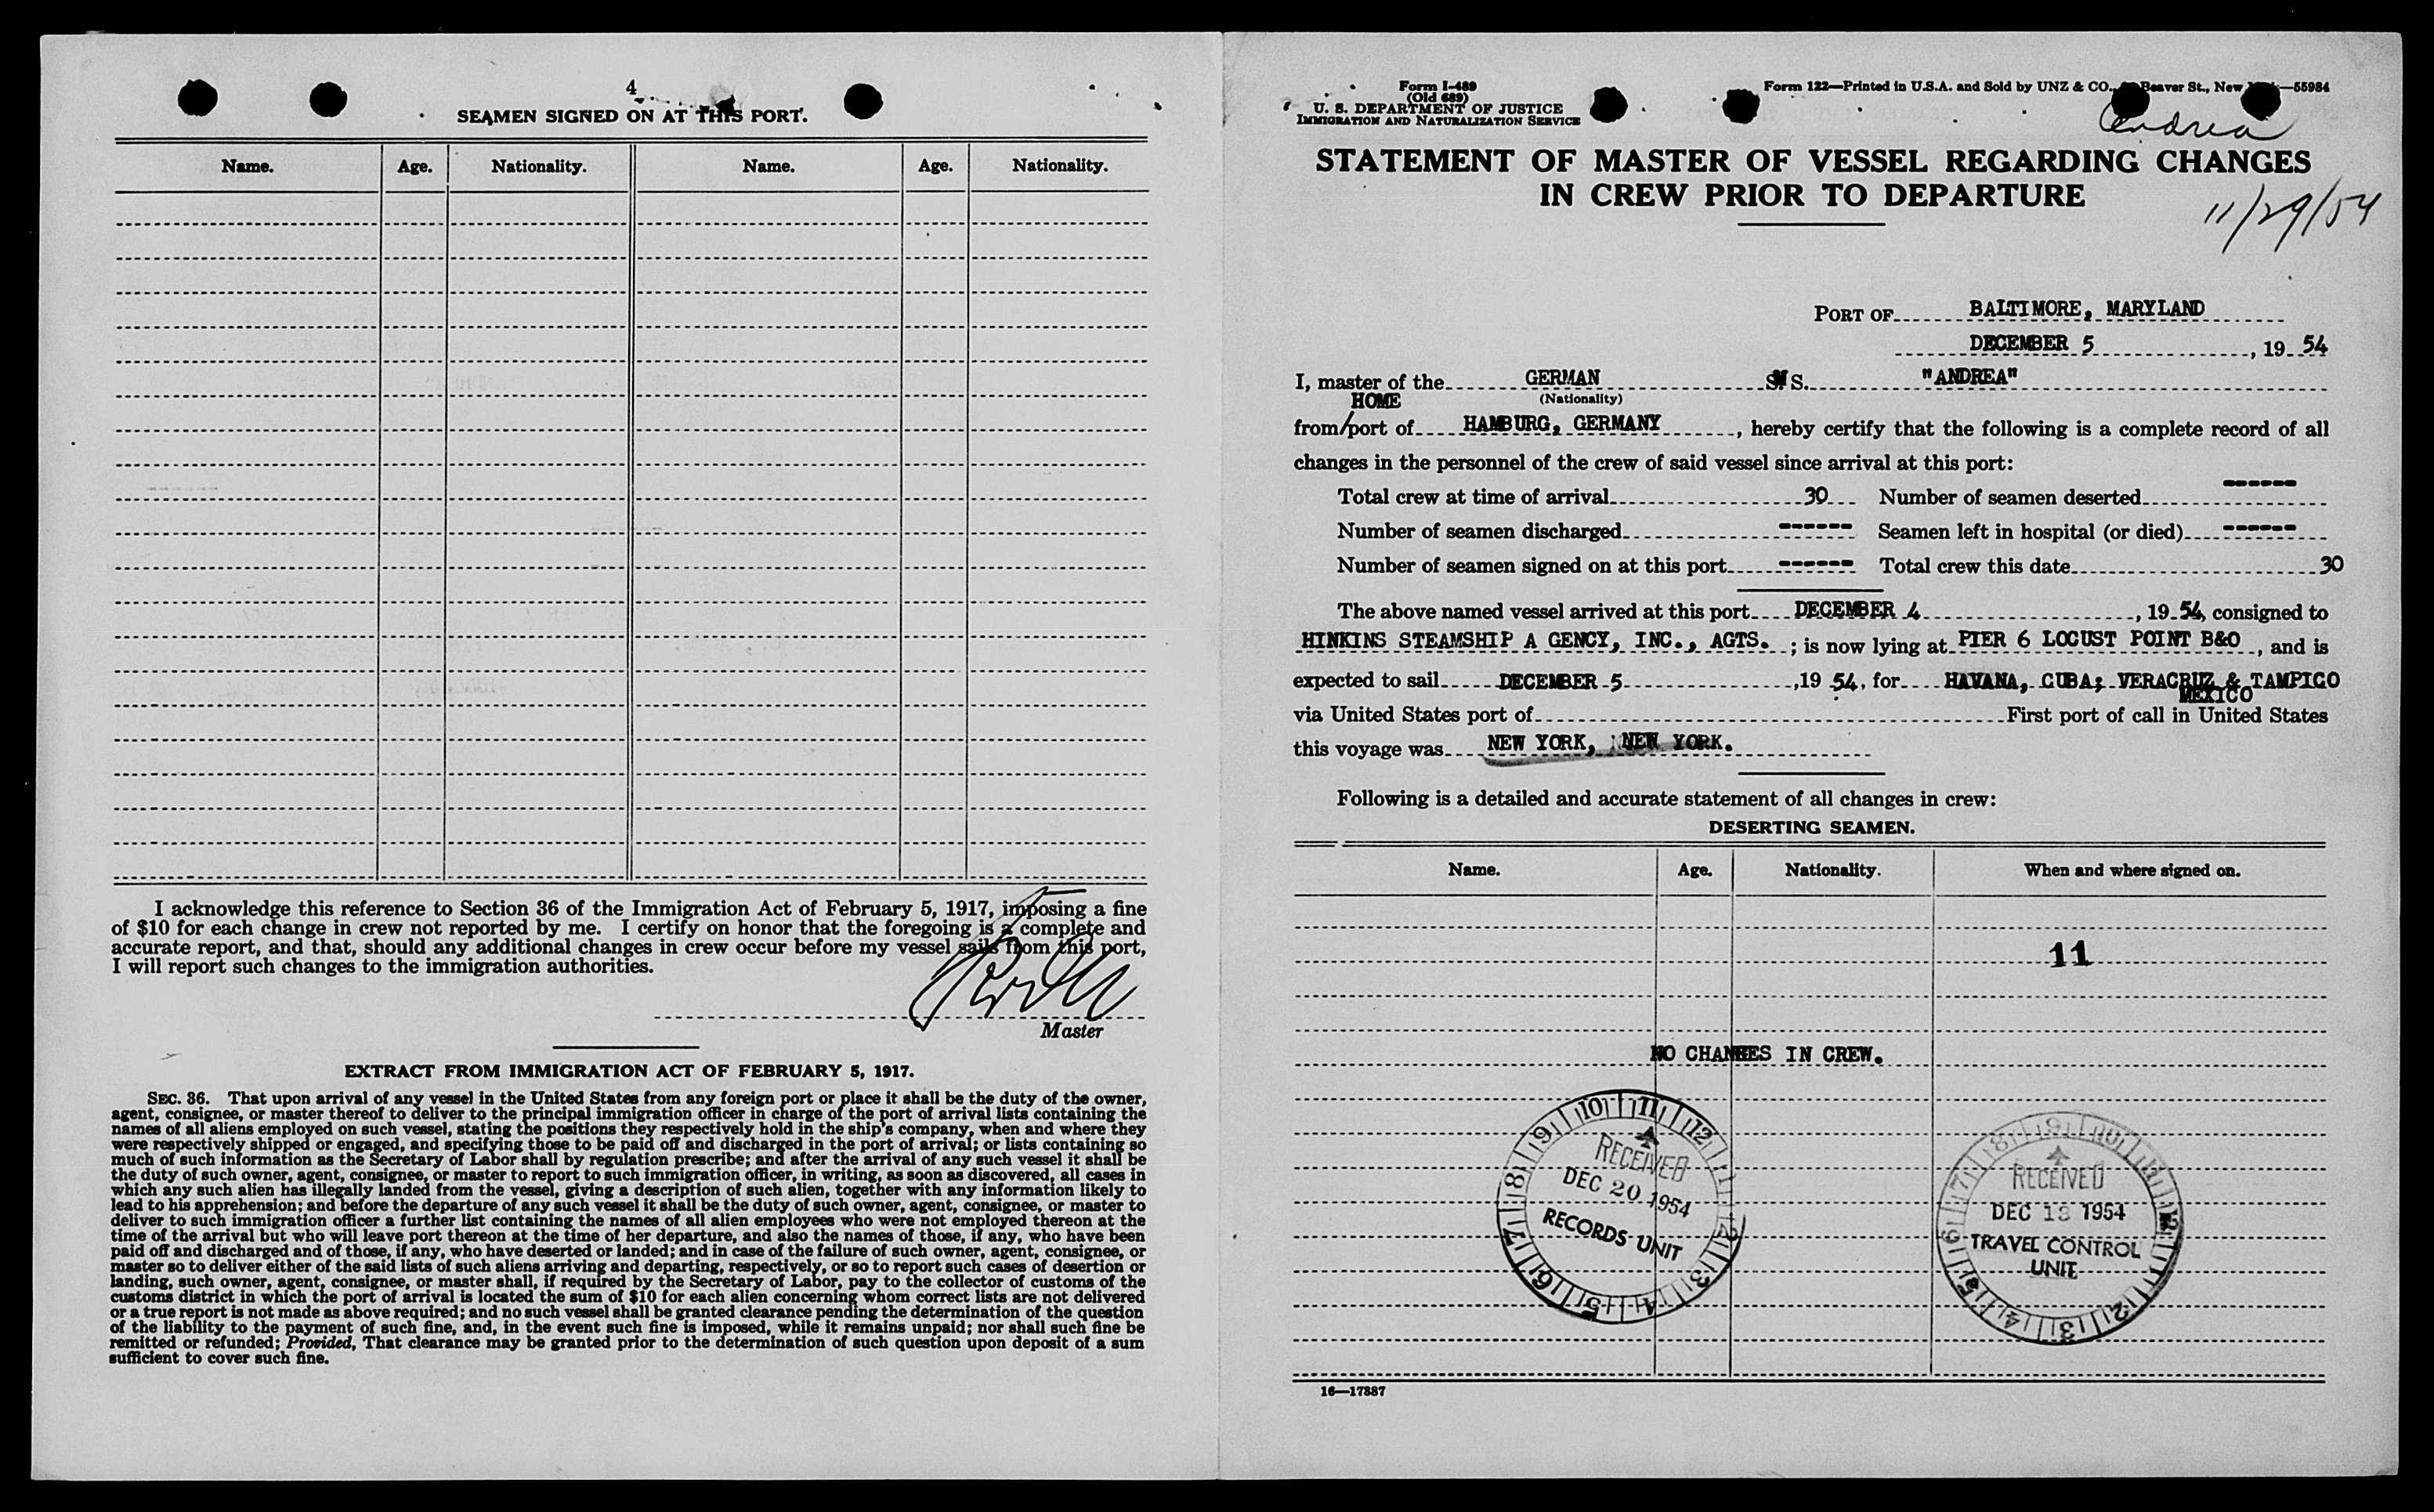 4
SEAMEN SIGNED ON AT THIS PORT.
Name. Age. Nationality. Name. Age. Nationality.
I acknowledge this reference to Section 36 of the Immigration Act of February 5, 1917, imposing a fine
of $10 for each change in crew not reported by me. I certify on honor that the foregoing is a complete and
accurate report, and that, should any additional changes in crew occur before my vessel sails from this port,
I will report such changes to the immigration authorities.
Master
EXTRACT FROM IMMIGRATION ACT OF FEBRUARY 5, 1917.
SEC. 36. That upon arrival of any vessel in the United States from any foreign port or place it shall be the duty of the owner,
agent, consignee, or master thereof to deliver to the principal immigration officer in charge of the port of arrival lists containing the
names of all aliens employed on such vessel, stating the positions they respectively hold in the ship's company, when and where they
were respectively shipped or engaged, and specifying those to be paid off and discharged in the port of arrival; or lists containing so
much of such information as the Secretary of Labor shall by regulation prescribe; and after the arrival of any such vessel it shall be
the duty of such owner, agent, consignee, or master to report to such immigration officer, in writing, as soon as discovered, all cases in
which any such alien has illegally landed from the vessel, giving a description of such alien, together with any information likely to
lead to his apprehension; and before the departure of any such vessel it shall be the duty of such owner, agent, consignee, or master to
deliver to such immigration officer a further list containing the names of all alien employees who were not employed thereon at the
time of the arrival but who will leave port thereon at the time of her departure, and also the names of those, if any, who have been
paid off and discharged and of those, if any, who have deserted or landed; and in case of the failure of such owner, agent, consignee, or
master so to deliver either of the said lists of such aliens arriving and departing, respectively, or so to report such cases of desertion or
landing, such owner, agent, consignee, or master shall, if required by the Secretary of Labor, pay to the collector of customs of the
customs district in which the port of arrival is located the sum of $10 for each alien concerning whom correct lists are not delivered
or a true report is not made as above required; and no such vessel shall be granted clearance pending the determination of the question
of the liability to the payment of such fine, and, in the event such fine is imposed, while it remains unpaid; nor shall such fine be
remitted or refunded; Provided, That clearance may be granted prior to the determination of such question upon deposit of a sum
sufficient to cover such fine.
Form I-489
(Old 689)
U. S. DEPARTMENT OF JUSTICE
IMMIGRATION AND NATURALIZATION SERVICE
Form 122—Printed in U.S.A. and Sold by UNZ & CO., Beaver St., New —55984
Andrea
STATEMENT OF MASTER OF VESSEL REGARDING CHANGES
IN CREW PRIOR TO DEPARTURE
11/29/54
PORT OF BALTIMORE, MARYLAND
DECEMBER 5, 19 54
I, master of the GERMAN M S. "ANDREA"
HOME (Nationality)
from/port of HAMBURG, GERMANY, hereby certify that the following is a complete record of all
changes in the personnel of the crew of said vessel since arrival at this port:
Total crew at time of arrival 30 Number of seamen deserted ------
Number of seamen discharged ------ Seamen left in hospital (or died) ------
Number of seamen signed on at this port ------ Total crew this date 30
The above named vessel arrived at this port DECEMBER 4, 19 54, consigned to
HINKINS STEAMSHIP A GENCY, INC., AGTS. ; is now lying at PIER 6 LOCUST POINT B&O, and is
expected to sail DECEMBER 5, 19 54, for HAVANA, CUBA; VERACRUZ & TAMPICO
MEXICO
via United States port of First port of call in United States
this voyage was NEW YORK, NEW YORK.
Following is a detailed and accurate statement of all changes in crew:
DESERTING SEAMEN.
Name. Age. Nationality. When and where signed on.
11
NO CHANGES IN CREW.
10 11 12 1 2 3 4 5 6 7 8 9
RECEIVED
DEC 20 1954
RECORDS UNIT
RECEIVED
DEC 13 1954
TRAVEL CONTROL
UNIT
16—17887